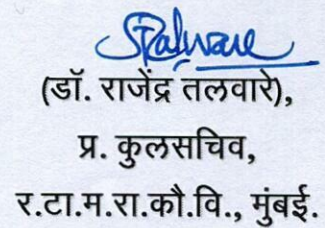 (डॉ. राजेंद्र तलवारे),
प्र. कुलसचिव,
र.टा.म.रा.कौ.वि., मुंबई.